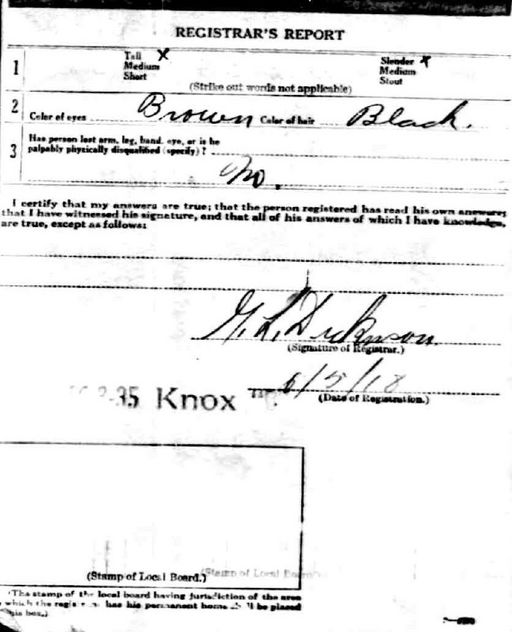 REGISTRAR'S REPORT
1 Tall X Slender X
Medium Medium
Short Stout
(Strike out words not applicable)
2 Color of eyes Brown Color of hair Black.
3 Has person lost arm, leg, hand, eye, or is he
palpably physically disqualified (specify)?
No.
I certify that my answers are true; that the person registered has read his own answers;
that I have witnessed his signature, and that all of his answers of which I have knowledge,
are true, except as follows:
L. Dickinson
(Signature of Registrar.)
35 Knox 6/5/18
(Date of Registration.)
(Stamp of Local Board.) (Stamp of Local Board
(The stamp of the local board having jurisdiction of the area
which the has his permanent home be placed
box.)